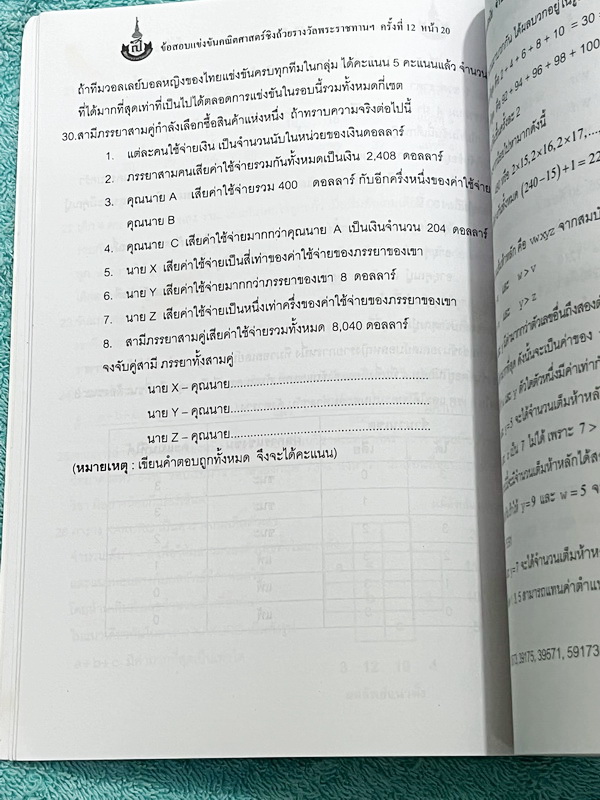 ข้อสอบแข่งขันคณิตศาสตร์ชิงถ้วยรางวัลพระราชทานฯ ครั้งที่ 12 หน้า 20
ถ้าทีมวอลเลย์บอลหญิงของไทยแข่งขันครบทุกทีมในกลุ่ม ได้คะแนน 5 คะแนนแล้ว จำนวน
ที่ได้มากที่สุดเท่าที่เป็นไปได้ตลอดการแข่งขันในรอบนี้รวมทั้งหมดกี่เซต
30.สามีภรรยาสามคู่กำลังเลือกซื้อสินค้าแห่งหนึ่ง ถ้าทราบความจริงต่อไปนี้
1. แต่ละคนใช้จ่ายเงิน เป็นจำนวนนับในหน่วยของเงินดอลลาร์
2. ภรรยาสามคนเสียค่าใช้จ่ายรวมกันทั้งหมดเป็นเงิน 2,408 ดอลลาร์
3. คุณนาย A เสียค่าใช้จ่ายรวม 400 ดอลลาร์ กับอีกครึ่งหนึ่งของค่าใช้จ่าย
คุณนาย B
4. คุณนาย C เสียค่าใช้จ่ายมากกว่าคุณนาย A เป็นเงินจำนวน 204 ดอลลาร์
5. นาย X เสียค่าใช้จ่ายเป็นสี่เท่าของค่าใช้จ่ายของภรรยาของเขา
6. นาย Y เสียค่าใช้จ่ายมากกว่าภรรยาของเขา 8 ดอลลาร์
7. นาย Z เสียค่าใช้จ่ายเป็นหนึ่งเท่าครึ่งของค่าใช้จ่ายของภรรยาของเขา
8. สามีภรรยาสามคู่เสียค่าใช้จ่ายรวมทั้งหมด 8,040 ดอลลาร์
จงจับคู่สามี ภรรยาทั้งสามคู่
นาย X – คุณนาย..................................................
นาย Y – คุณนาย..................................................
นาย Z – คุณนาย..................................................
(หมายเหตุ : เขียนคำตอบถูกทั้งหมด จึงจะได้คะแนน)
4 + 6 + 8 + 10 = 30
92 + 94 + 96 + 98 + 100
2×15, 2×16, 2×17, ...
(240 –15) +1 = 22
คือ vwxyz จากสมบั
และ w > v
และ y > z
เป็น 7 ไม่ได้ เพราะ 7 >
y=9 และ w = 5
39175, 39571, 59173